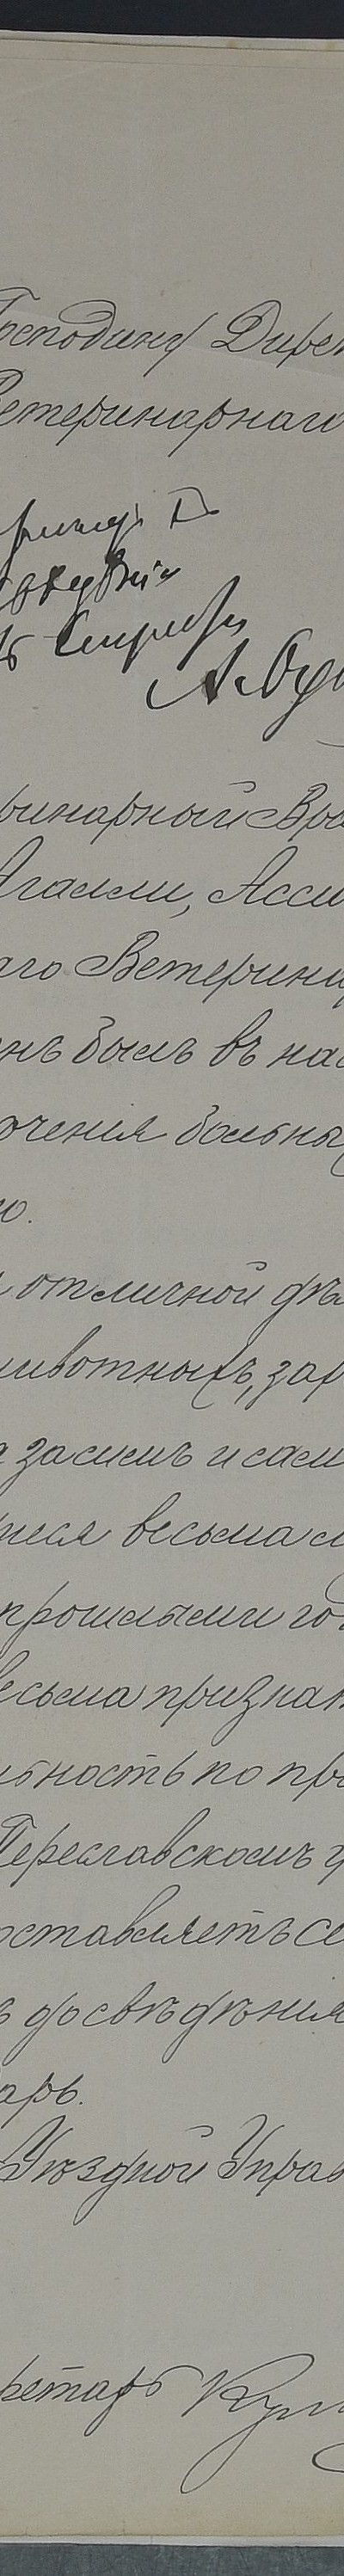 Господину Дирек
Ветеринарнаго
А.
ринарный Вра
Агалли, Асси
аго Ветерина
нъ былъ въ нас
очения больны
ю.
отличной дѣ
ивотныхъ, зар
засимъ и сами
иеся весьма
прошлыми го
весьма признат
ность по пр
Переславскомъ у
оставляетъ се
ъ до свѣдѣния
арь.
Уѣздной Управ
ретарь Кул